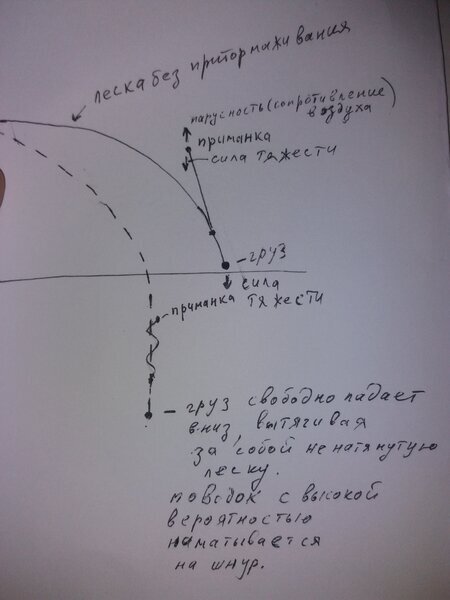 леска без притормаживания
парусность (сопротивление
воздуха)
приманка
сила тяжести
груз
сила
тяжести
приманка
груз свободно падает
вниз, вытягивая
за собой не натянутую
леску.
поводок с высокой
вероятностью
наматывается
на шнур.